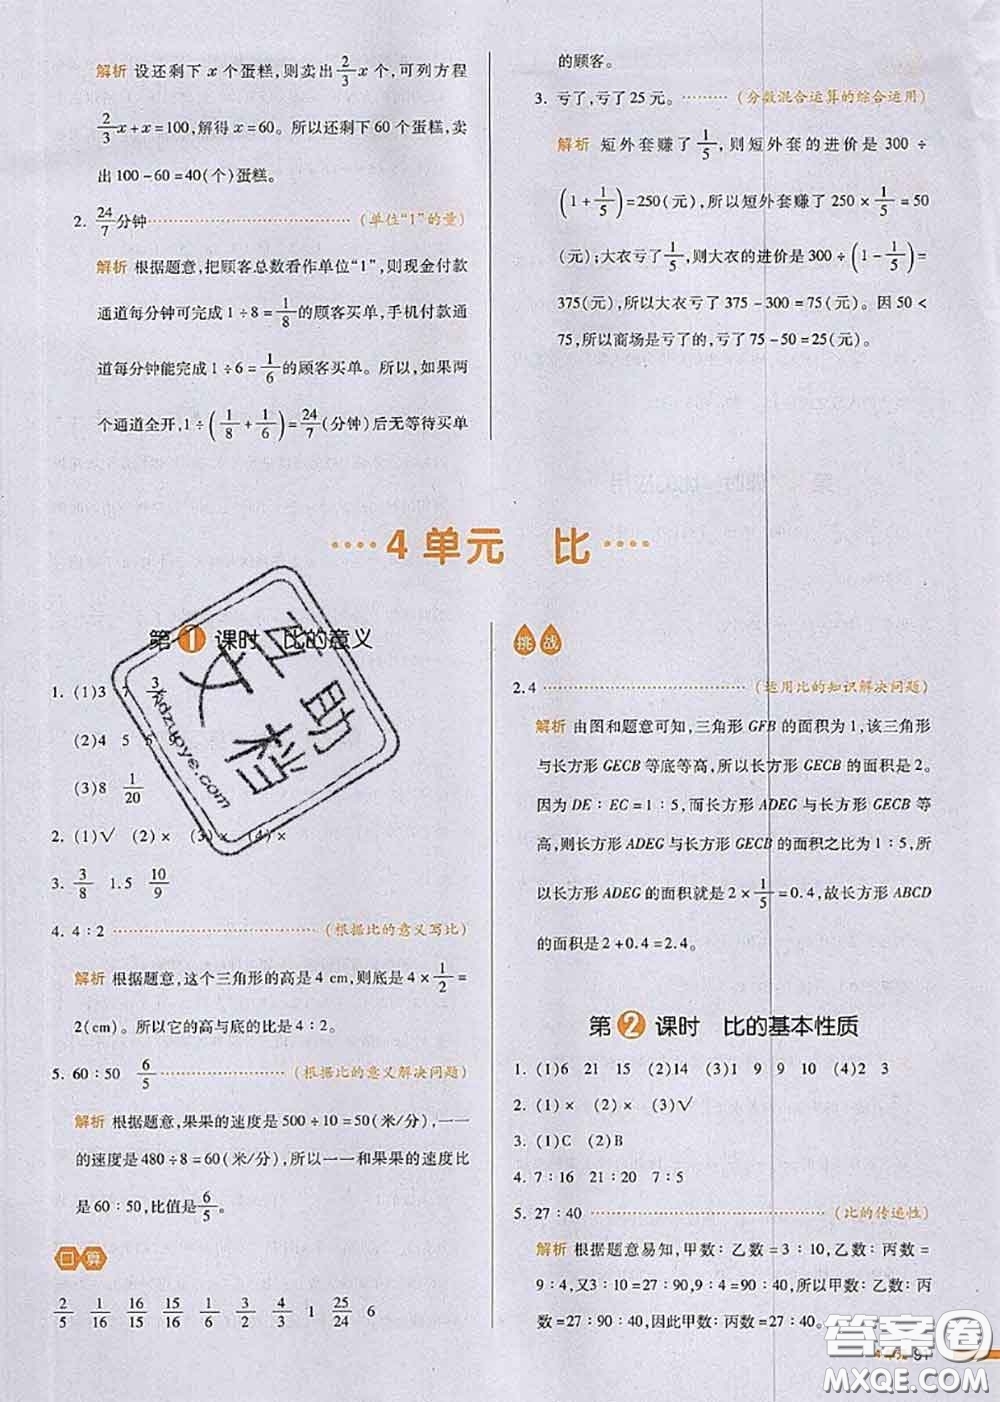 解析 设还剩下 x 个蛋糕,则卖出 2/3 x 个,可列方程
2/3 x+x=100,解得 x=60。所以还剩下 60 个蛋糕,卖
出 100-60=40(个)蛋糕。
2. 24/7 分钟 (单位“1”的量)
解析 根据题意,把顾客总数看作单位“1”,则现金付款
通道每分钟可完成 1÷8=1/8 的顾客买单,手机付款通
道每分钟能完成 1÷6=1/6 的顾客买单。所以,如果两
个通道全开,1÷(1/8+1/6)=24/7(分钟)后无等待买单
的顾客。
3. 亏了,亏了 25 元。 (分数混合运算的综合运用)
解析 短外套赚了 1/5,则短外套的进价是 300÷
(1+1/5)=250(元),所以短外套赚了 250×1/5=50
(元);大衣亏了 1/5,则大衣的进价是 300÷(1-1/5)=
375(元),所以大衣亏了 375-300=75(元)。因 50<
75,所以商场是亏了的,亏了 75-50=25(元)。
4 单元 比
第1课时 比的意义
1. (1)3 7 3
(2)4 5
(3)8 1/20
2. (1)√ (2)× (3)× (4)×
3. 3/8 1.5 10/9
4. 4∶2 (根据比的意义写比)
解析 根据题意,这个三角形的高是 4 cm,则底是 4×1/2=
2(cm)。所以它的高与底的比是 4∶2。
5. 60∶50 6/5 (根据比的意义解决问题)
解析 根据题意,果果的速度是 500÷10=50(米/分),一一
的速度是 480÷8=60(米/分),所以一一和果果的速度比
是 60∶50,比值是 6/5。
口算
2/5 1/16 16/15 15/16 1/6 3/2 4/3 1 25/24 6
挑战
2.4 (运用比的知识解决问题)
解析 由图和题意可知,三角形 GFB 的面积为 1,该三角形
与长方形 GECB 等底等高,所以长方形 GECB 的面积是 2。
因为 DE∶EC=1∶5,而长方形 ADEG 与长方形 GECB 等
高,则长方形 ADEG 与长方形 GECB 的面积之比为 1∶5,所
以长方形 ADEG 的面积就是 2×1/5=0.4,故长方形 ABCD
的面积是 2+0.4=2.4。
第2课时 比的基本性质
1. (1)6 21 15 (2)14 (3)1 9 9 10 (4)2 3
2. (1)× (2)× (3)√
3. (1)C (2)B
4. 7∶16 21∶20 7∶5
5. 27∶40 (比的传递性)
解析 根据题意易知,甲数∶乙数=3∶10,乙数∶丙数=
9∶4,又3∶10=27∶90,9∶4=90∶40,所以甲数∶乙数∶丙
数=27∶90∶40,因此甲数∶丙数=27∶40。
百文助档
kdzuoye.com
答案圈
MXQE.COM
91